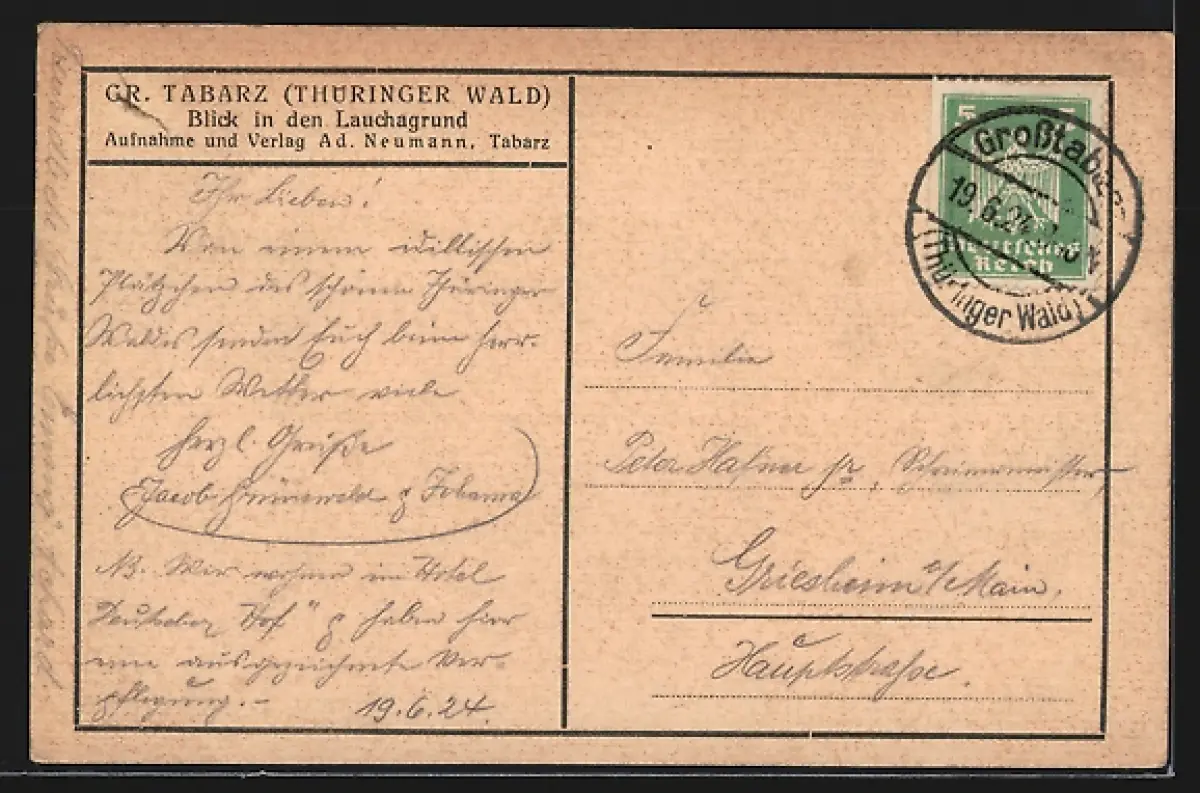 GR. TABARZ (THÜRINGER WALD)
Blick in den Lauchagrund
Aufnahme und Verlag Ad. Neumann, Tabarz
Ihr Lieben!
Von einem idillischen
Plätzchen des schönen Thüringer
Waldes senden Euch beim herr-
lichsten Wetter viele
herzl. Grüße
Jacob Grünewald & Johanna
NB. Wir wohnen im Hotel
Deutscher Hof" & haben hier
eine ausgezeichnete Ver-
pflegung.-
19.6.24.
Grüße
5
Deutsches
Reich
Großtabarz
19.6.24
(Thüringer Wald)
Familie
Peter Hafner jr, Schreinermeister,
Griesheim a/Main,
Hauptstraße.